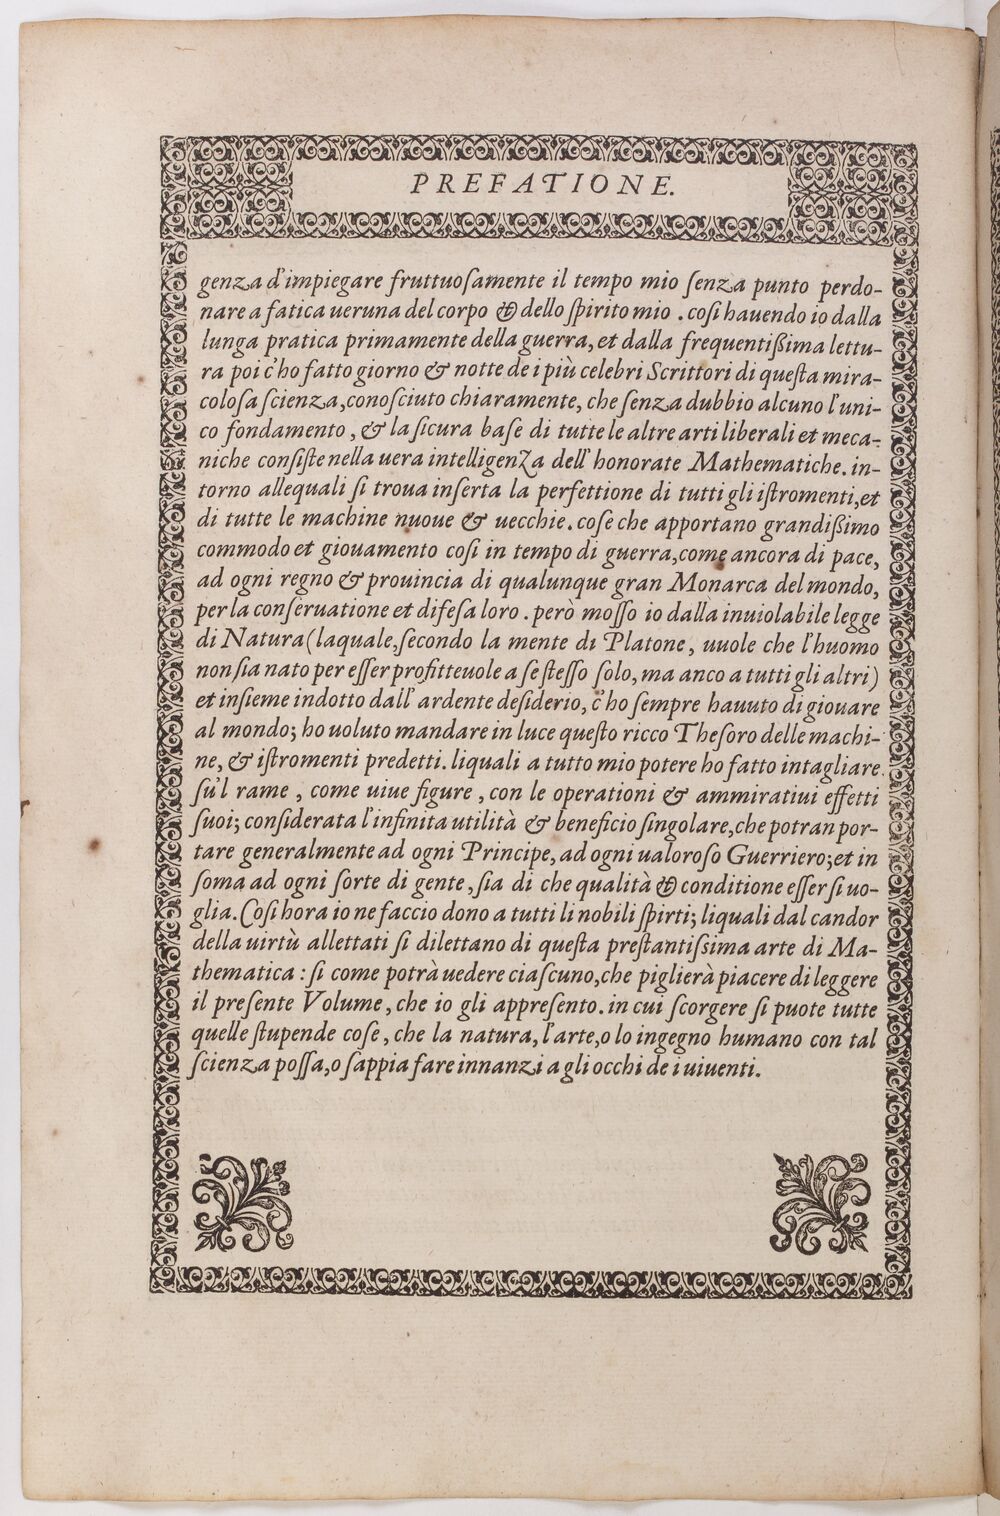 PREFATIONE.
genza d'impiegare fruttuoſamente il tempo mio ſenza punto perdo-
nare a fatica ueruna del corpo & dello ſpirito mio . coſi hauendo io dalla
lunga pratica primamente della guerra, et dalla frequentiſſima lettu-
ra poi c'ho fatto giorno & notte de i più celebri Scrittori di queſta mira-
coloſa ſcienza, conoſciuto chiaramente, che ſenza dubbio alcuno l'uni-
co fondamento, & la ſicura baſe di tutte le altre arti liberali et meca-
niche conſiſte nella uera intelligenza dell' honorate Mathematiche. in-
torno allequali ſi troua inſerta la perfettione di tutti gli iſtromenti, et
di tutte le machine nuoue & uecchie. coſe che apportano grandiſſimo
commodo et giouamento coſi in tempo di guerra, come ancora di pace,
ad ogni regno & prouincia di qualunque gran Monarca del mondo,
per la conſeruatione et difeſa loro . però moſſo io dalla inuiolabile legge
di Natura (laquale, ſecondo la mente di Platone, uuole che l'huomo
non ſia nato per eſſer profitteuole a ſe ſteſſo ſolo, ma anco a tutti gli altri)
et inſieme indotto dall' ardente deſiderio, c'ho ſempre hauuto di giouare
al mondo; ho uoluto mandare in luce queſto ricco Theſoro delle machi-
ne, & iſtromenti predetti. liquali a tutto mio potere ho fatto intagliare
ſu'l rame , come uiue figure , con le operationi & ammiratiui effetti
ſuoi; conſiderata l'infinita utilità & beneficio ſingolare, che potran por-
tare generalmente ad ogni Principe, ad ogni ualoroſo Guerriero; et in
ſoma ad ogni ſorte di gente, ſia di che qualità & conditione eſſer ſi uo-
glia. Coſi hora io ne faccio dono a tutti li nobili ſpirti; liquali dal candor
della uirtù allettati ſi dilettano di queſta preſtantiſsima arte di Ma-
thematica : ſi come potrà uedere ciaſcuno, che piglierà piacere di leggere
il preſente Volume, che io gli appreſento. in cui ſcorgere ſi puote tutte
quelle ſtupende coſe, che la natura, l'arte, o lo ingegno humano con tal
ſcienza poſſa, o ſappia fare innanzi a gli occhi de i uiuenti.